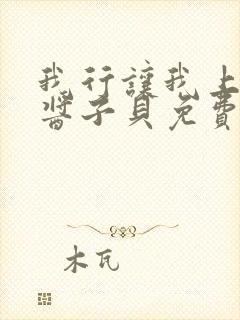 我行讓我上
醬子貝免費
木瓦